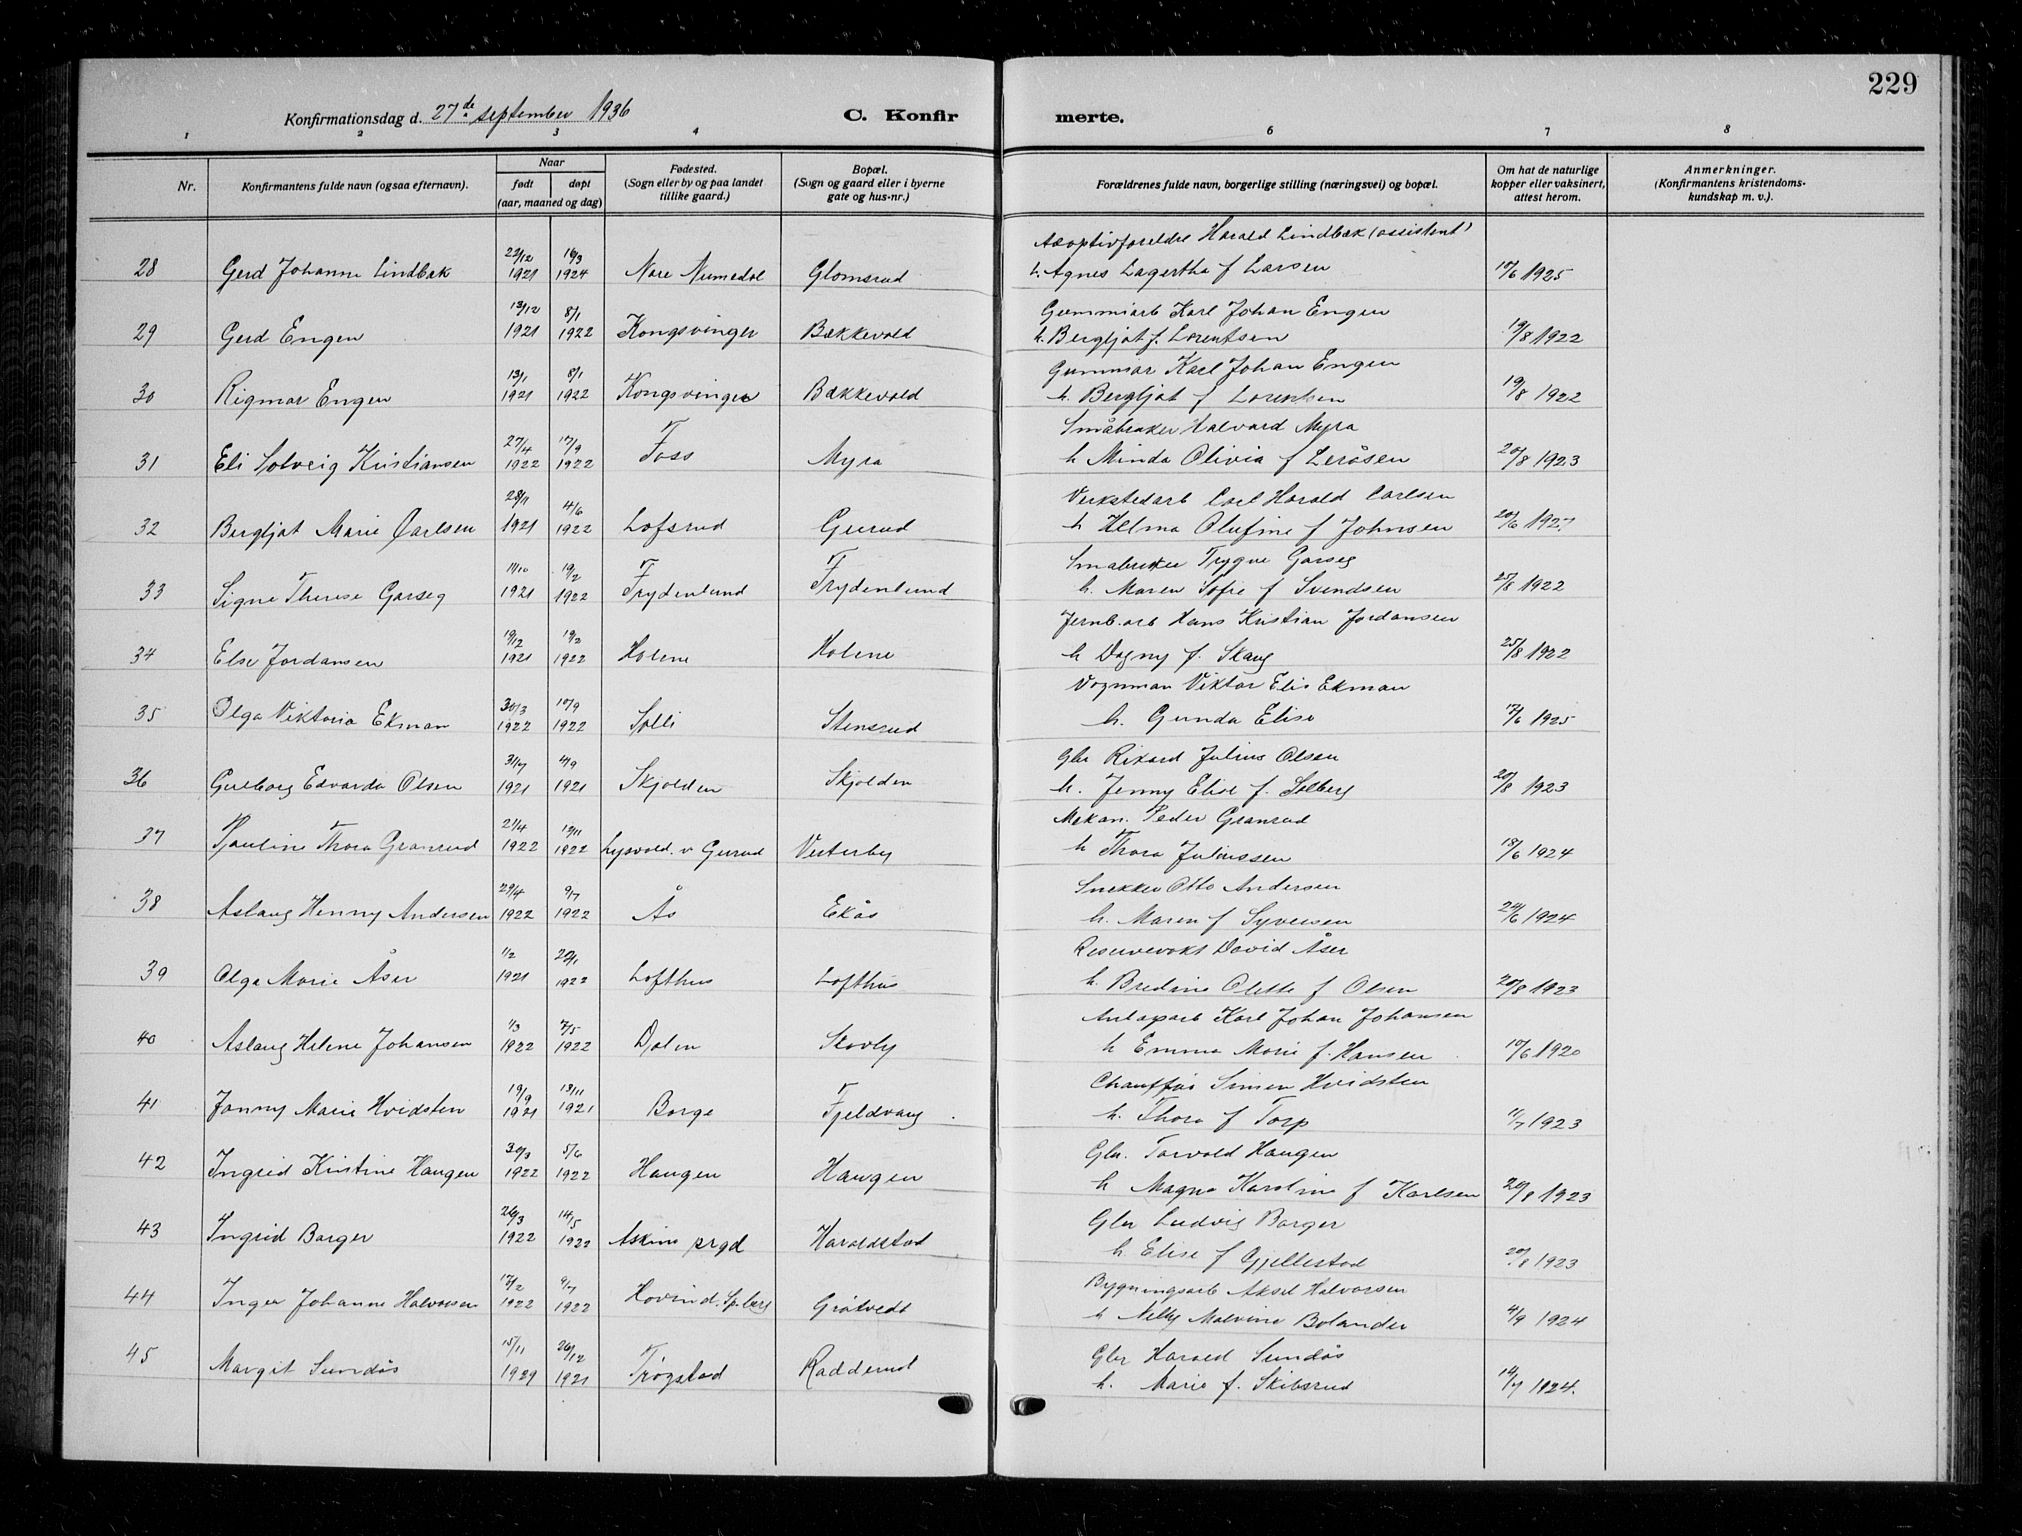 229
Konfirmationsdag d. 27de september 1936 C. Konfirmerte.
1 2 3 4 5 6 7 8
Nr. Konfirmantens fulde navn (ogsaa efternavn). Naar født døpt (aar, maaned og dag) Fødested. (Sogn eller by og paa landet tillike gaard.) Bopæl. (Sogn og gaard eller i byerne gate og hus-nr.) Forældrenes fulde navn, borgerlige stilling (næringsvei) og bopæl. Om hat de naturlige kopper eller vaksinert, attest herom. Anmerkninger. (Konfirmantens kristendomskundskap m. v.).
Adoptivforeldre Harald Lindbæk (assistent)
28 Gerd Johanne Lindbæk 22/12 1921 16/3 1924 Nore Numedal Glomsrud h. Agnes Lagertha f Larsen 10/6 1925
Gummiarb Karl Johan Engen
29 Gerd Engen 13/12 1921 8/1 1922 Kongsvinger Bækkevold h. Bergljot f. Lorentsen 19/8 1922
Gummiar Karl Johan Engen
30 Rigmar Engen 13/1 1921 8/1 1922 Kongsvinger Bækkevold h. Bergljot f Lorentsen 19/8 1922
Småbruker Halvard Myra
31 Eli Solveig Kristiansen 27/4 1922 17/9 1922 Foss Myra h Minda Olivia f Leråsen 20/8 1923
Verkstedarb Carl Harald Carlsen
32 Bergljot Marie Carlsen 28/11 1921 4/6 1922 Lofsrud Gurud h Helma Olufine f Johnsen 20/6
Småbruker Trygve Garseg
33 Signe Therese Garseg 11/10 1921 19/2 1922 Frydenlund Frydenlund h. Maren Sofie f Svendsen 25/8 1922
Jernb.arb Hans Kristian Jordansen
34 Else Jordansen 19/12 1921 19/2 1922 Holene Holene h Dagny f. Skaug 25/8 1922
Vognman Viktor Elis Ekman
35 Olga Viktoria Ekman 30/3 1922 10/9 1922 Solli Stensrud h. Gunda Elise 17/6 1925
Gbr Rikard Julius Olsen
36 Gulborg Edvarda Olsen 31/7 1921 4/9 1921 Skjolden Skjolden h. Jenny Elise f. Solberg 20/8 1923
Mekan. Peder Granrud
37 Pauline Thora Granrud 21/4 1922 12/11 1922 Lysvold. v Gurud Vesterby h Thora Juliussen 18/6 1924
Snekker Otto Andersen
38 Aslaug Henny Andersen 29/4 1922 9/7 1922 Ås Ekås h. Maren f Syversen 24/6 1924
Reservevokt David Åser
39 Olga Marie Åser 1/2 1921 22/1 1922 Lofthus Lofthus h. Bredine Olette f Olsen 20/8 1923
Karl Johan Johansen
40 Aslaug Helene Johansen 1/3 1922 7/5 1922 Dalen Skovly h Emma Marie f. Hansen 10/6 1920
Chauffør Simen Hvidsten
41 Janny Marie Hvidsten 19/9 1921 13/11 1921 Borge Fjeldvang h. Thora f Torp 11/7 1923
Gbr. Torvald Haugen
42 Ingrid Kristine Haugen 30/3 1922 5/6 1922 Haugen Haugen h Magna Karoline f Karlsen 20/8 1923
Gbr Ludvig Borger
43 Ingrid Borger 26/3 1922 14/5 1922 Askim prgd Haraldstad h Elise f Gjellestad 20/8 1923
Bygningsarb Aksel Halvorsen
44 Inger Johanne Halvorsen 17/2 1922 9/7 1922 Hovin d. Sp.berg Grötvedt h Nelly Malvine Bolander 4/9 1924
Gbr Harald Sundås
45 Margit Sundås 15/11 1921 26/12 1921 Trøgstad Radderud h. Marie f. Skibsrud 14/7 1924.